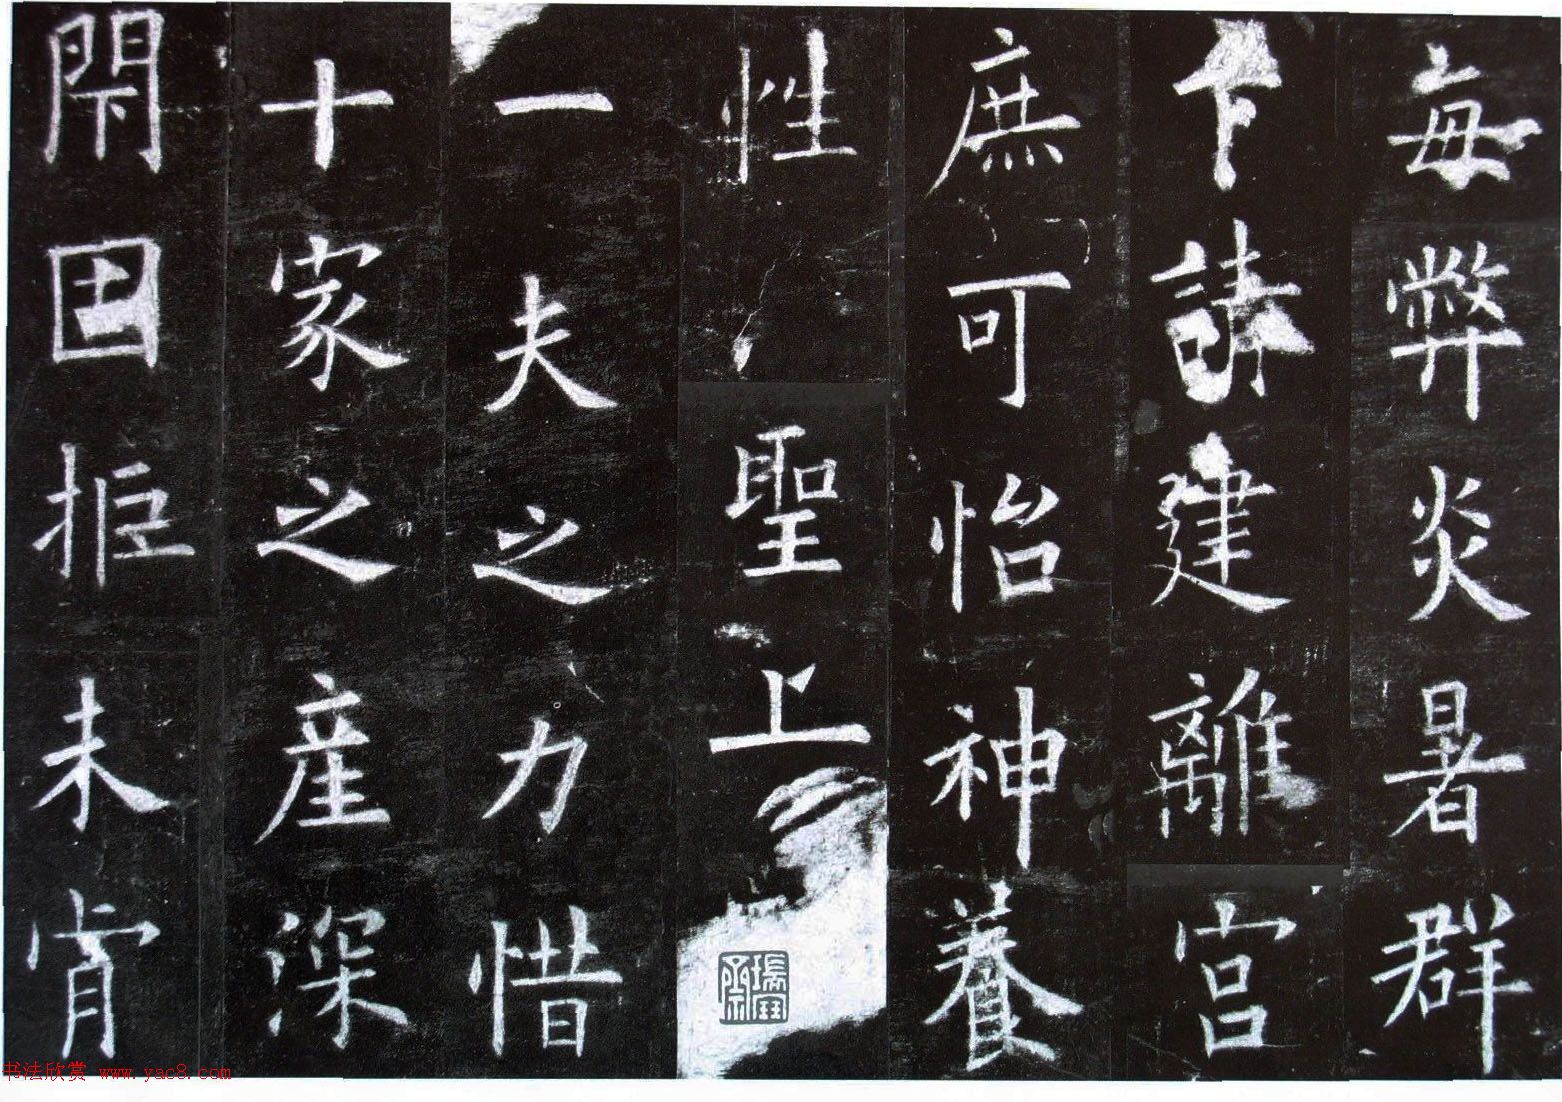 每弊炎暑群
下請建離宮
庶可怡神養
性聖上
一夫之力惜
十家之產深
閇固拒未肯
书法欣赏 www.yac8.com